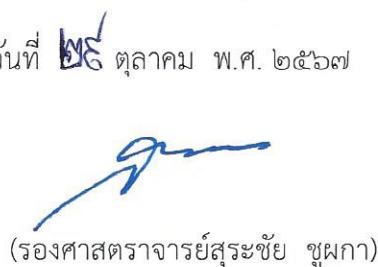 วันที่ ๒๙ ตุลาคม พ.ศ. ๒๕๖๗
(รองศาสตราจารย์สุระชัย ชูผกา)